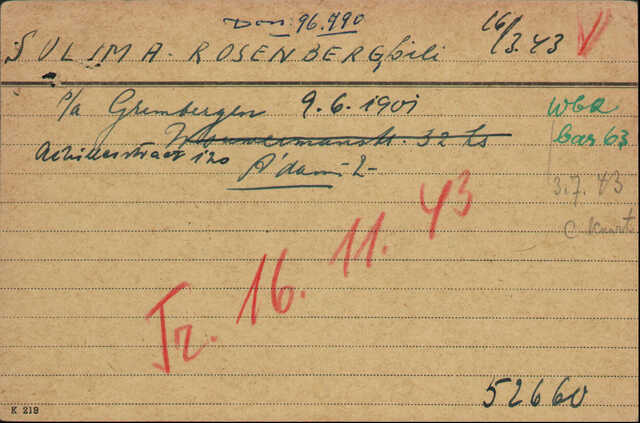 Don. 96.790
SULIMA-ROSENBERG, Lili 16/3.43 V
p/a Grimbergen 9.6.1901 Wbk
Wouwermanstr. 32 hs bar 63
Achillesstraat 120
A'dam-Z 3.7.43
C. Kaart
Tr. 16. 11. 43
52660
K 219